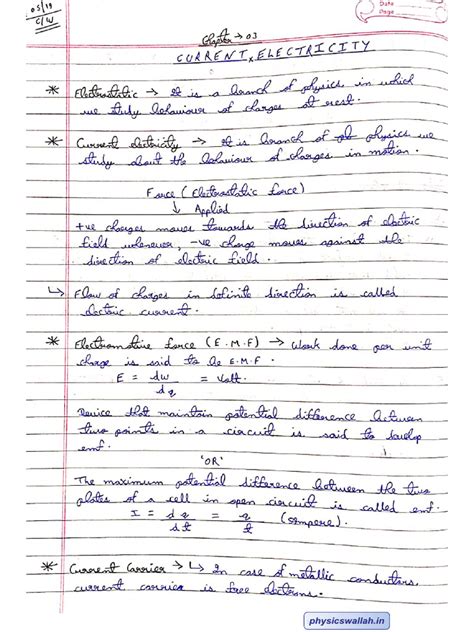 05/19
C/W
Date
Page
Chapter → 03
CURRENT ELECTRICITY
* Electrostatic → It is a branch of physics in which
we study behaviour of charges at rest.
* Current electricity → It is branch of physics we
study about the behaviour of charges in motion.
Force (Electrostatic force)
↓ Applied
+ve charges moves towards the direction of electric
field whenever, -ve charge moves against the
direction of electric field.
↳ Flow of charges in definite direction is called
electric current.
* Electromotive force (E.M.F) → Work done per unit
charge is said to be E.M.F.
E = dw/dq = Volt.
Device that maintain potential difference between
two points in a circuit is said to develop
emf.
'OR'
The maximum potential difference between the two
plates of a cell in open circuit is called emf.
I = dq/dt = q/t (ampere).
* Current Carrier → ↳ In case of metallic conductors,
current carrier is free electrons.
physicswallah.in